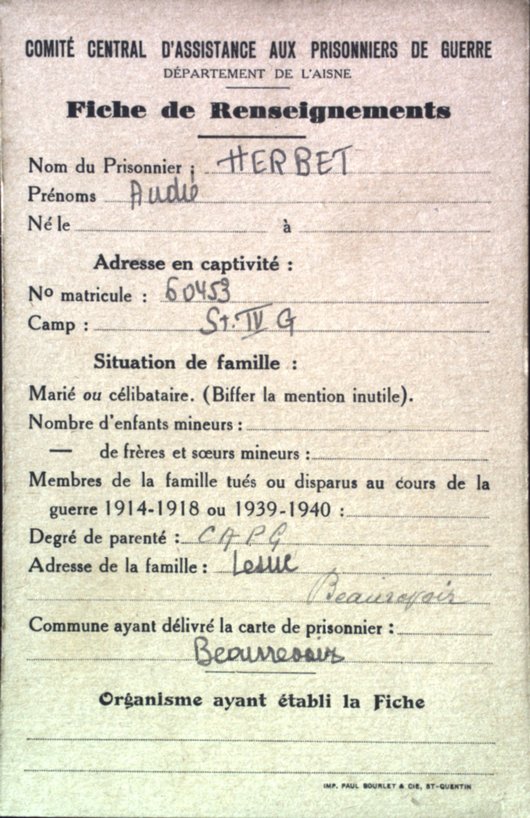 COMITÉ CENTRAL D'ASSISTANCE AUX PRISONNIERS DE GUERRE
DÉPARTEMENT DE L'AISNE
Fiche de Renseignements
Nom du Prisonnier : HERBET
Prénoms André
Né le à
Adresse en captivité :
No matricule : 60453
Camp : St. IV G
Situation de famille :
Marié ou célibataire. (Biffer la mention inutile).
Nombre d'enfants mineurs :
— de frères et sœurs mineurs :
Membres de la famille tués ou disparus au cours de la
guerre 1914-1918 ou 1939-1940 :
Degré de parenté : CAPG
Adresse de la famille :
Beaurevoir
Commune ayant délivré la carte de prisonnier :
Beaurevoir
Organisme ayant établi la Fiche
IMP. PAUL BOURLET & CIE, ST-QUENTIN